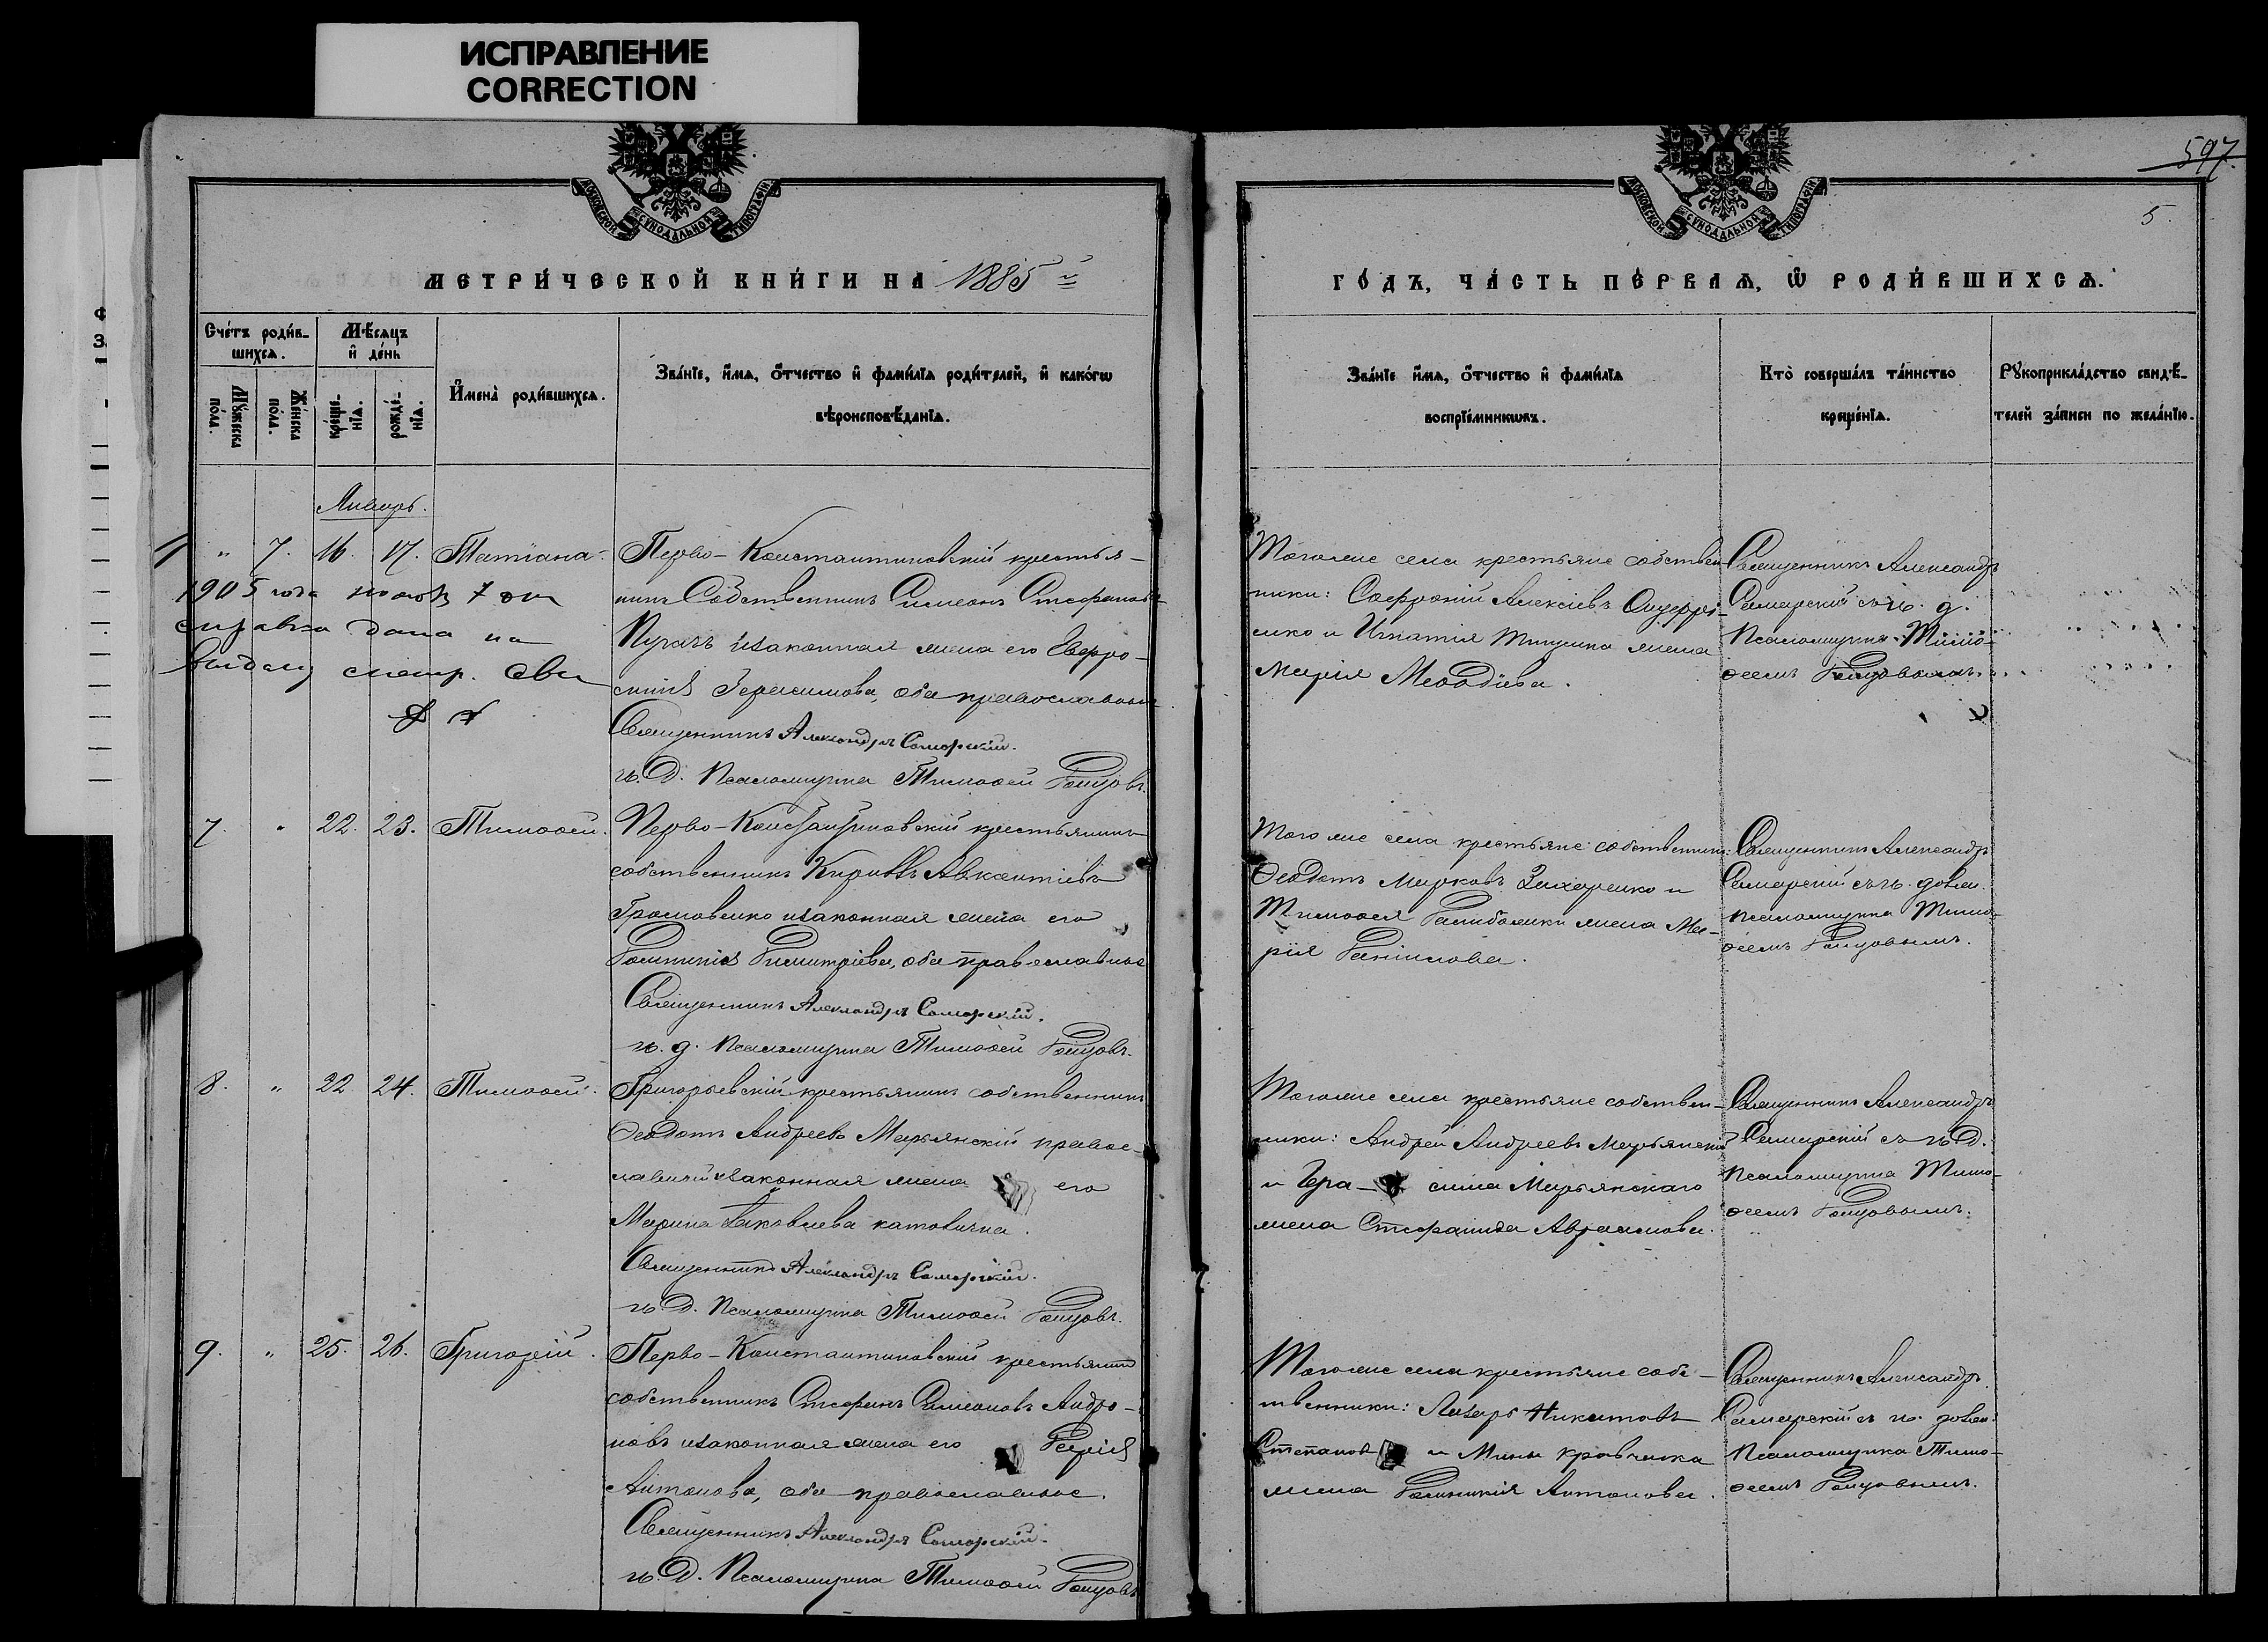 ИСПРАВЛЕНИЕ
CORRECTION
597.
5.
МОСКОВСКОЙ СѴНОДАЛЬНОЙ ТИПОГРАФІИ
МОСКОВСКОЙ СѴНОДАЛЬНОЙ ТИПОГРАФІИ
МЕТРИ́ЧЕСКОЙ КНИ́ГИ НА 1885й
ГО́ДЪ, ЧА́СТЬ ПЕ́РВАѦ, Ѡ РОДИ́ВШИХСѦ.
Сче́тъ роди́в-
шихсѧ.
Мꙋ́жеска
по́ла.
Же́нска
по́ла.
Мѣ́сѧцъ
и де́нь
креще-
нїѧ.
рожде́-
нїѧ.
И́мена̀ роди́вшихсѧ.
Зва́нїе, и́мѧ, о́тчество и фами́лїѧ роди́телей, и како́гѡ
вѣроисповѣ́данїѧ.
Зва́нїе и́мѧ, о́тчество и фами́лїѧ
воспрїе́мникѡвъ.
Кто̀ соверша́лъ та́инство
креще́нїѧ.
Рꙋкоприкла́дство свидѣ́-
телей за́писи по жела́нїю.
Январь.
" 7. 16. 17. Татіана.
Перво-Константиновскій крестья-
нинъ Собственникъ Симеонъ Стефановъ
Пугачъ изаконная жена его Евфро-
синія Герасимова, оба православные
Священникъ Александръ Самарскій.
и. д. Псаломщика Тимоѳей Донцовъ.
1905 года 7 дня
справка дана на
выдачу метр. сви
Тогоже села крестьяне собствен
ники: Софроній Алексіевъ
и Игнатія жена
Марія Меѳодіева.
Священникъ Александръ
Самарскій съ и. д.
Псаломщика Тимо-
ѳеемъ Донцовымъ.
7. " 22. 23. Тимоѳей.
Перво-Константиновскій крестьянинъ
собственникъ Кириллъ Авксентіевъ
Громовенко изаконная жена его
Домникія Димитріева, оба православные
Священникъ Александръ Самарскій.
и. д. Псаломщика Тимоѳей Донцовъ.
Того же села крестьяне собственники:
Ѳеодотъ Марковъ Захаренко и
Тимоѳея жена Ма-
рія Даніилова.
Священникъ Александръ
Самарскій съ и. долж.
псаломщика Тимо-
ѳеемъ Донцовымъ.
8. " 22. 24. Тимоѳей.
Григорьевскій крестьянинъ собственникъ
Ѳеодотъ Андреевъ Марьянскій правос-
лавный изаконная жена его
Марина Іаковлева католичка.
Священникъ Александръ Самарскій.
и. д. Псаломщика Тимоѳей Донцовъ.
Тогоже села крестьяне собствен-
ники: Андрей Андреевъ Марьянскій
и Гера- сима Марьянскаго
жена Стефанида Авраамова.
Священникъ Александръ
Самарскій съ и. д.
Псаломщика Тимо-
ѳеемъ Донцовымъ.
9. " 25. 26. Григорій.
Перво-Константиновскій крестьянинъ
собственникъ Стефанъ Симеоновъ Андро-
новъ изаконная жена его Дарія
Антонова, оба православные.
Священникъ Александръ Самарскій.
и. д. Псаломщика Тимоѳей Донцовъ
Тогоже села крестьяне собс-
твенники: Лазарь Никитовъ
Степанов и Мины Кравченка
жена Домникія Антонова.
Священникъ Александръ
Самарскій съ и. долж.
Псаломщика Тимо-
ѳеемъ Донцовымъ.